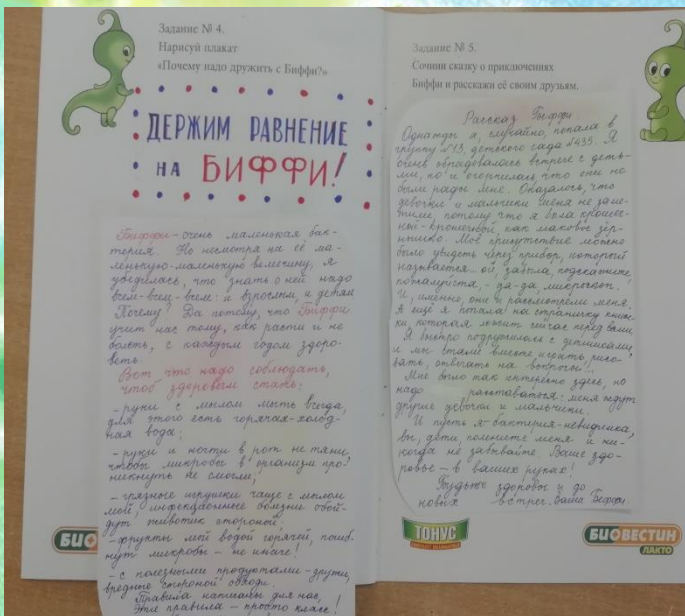 Задание № 4.
Нарисуй плакат
«Почему надо дружить с Биффи?»
ДЕРЖИМ РАВНЕНИЕ
НА БИФФИ!
Биффи - очень маленькая бак-
терия. Но несмотря на её ма-
ленькую-маленькую величину, я
убедилась, что знать о ней надо
всем-всем-всем: и взрослым, и детям.
Почему? Да потому, что Биффи
учит нас тому, как расти и не
болеть, с каждым годом здоро-
веть.
Вот что надо соблюдать,
чтоб здоровым стать:
- руки с мылом мыть всегда,
для этого есть горячая-холод-
ная вода;
- руки и ногти в рот не тяни,
чтобы микробы в организм про-
никнуть не смогли;
- грязные игрушки чаще с мылом
мой, инфекционные болезни обой-
дут животик стороной;
- фрукты мой водой горячей, погиб-
нут микробы - не иначе!
- с полезными продуктами - дружи,
вредные стороной обходи.
Правила написаны для нас,
Эти правила - просто класс!
БИО
Задание № 5.
Сочини сказку о приключениях
Биффи и расскажи её своим друзьям.
Рассказ Биффи
Однажды я, случайно, попала в
группу №13, детского сада №435. Я
очень обрадовалась встрече с деть-
ми, но и огорчилась, что они не
были рады мне. Оказалось, что
девочки и мальчики меня не заме-
тили, потому что я была крошеч-
ной-крошечной, как маковое зёр-
нышко. Моё присутствие можно
было увидеть через прибор, который
называется - ой, забыла, подскажите,
пожалуйста, - да-да, микроскоп.
И, именно, они и рассмотрели меня.
А ещё я попала на страничку книж-
ки, которая лежит сейчас перед вами.
Я быстро подружилась с детишками,
и мы стали вместе играть, рисо-
вать, отвечать на вопросы!..
Мне было так интересно здесь, но
надо расставаться: меня ждут
другие девочки и мальчики.
И пусть я - бактерия-невидимка,
вы, дети, помните меня и ни-
когда не забывайте. Ваше здо-
ровье - в ваших руках!
Будьте здоровы и до
новых встреч. Ваша Биффи.
ТОНУС
БИОВЕСТИН
ЛАКТО